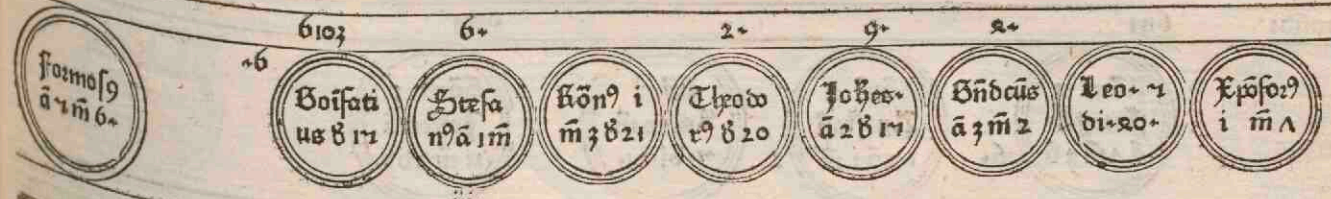 6103 6· 2· 9· 4·
·6
Formosꝰ
ā 5 m̄ 6·
Boīfati
us đ 15
Stefa
nꝰ ā 1 m̄
Rōnꝰ i
m̄ 3 đ 21
Theodo
rꝰ đ 20
Joħes·
ā 2 đ 15
Bn̄dcūs
ā 3 m̄ 2
Leo· 5
di·40·
Xp̄oforꝰ
i m̄ 7